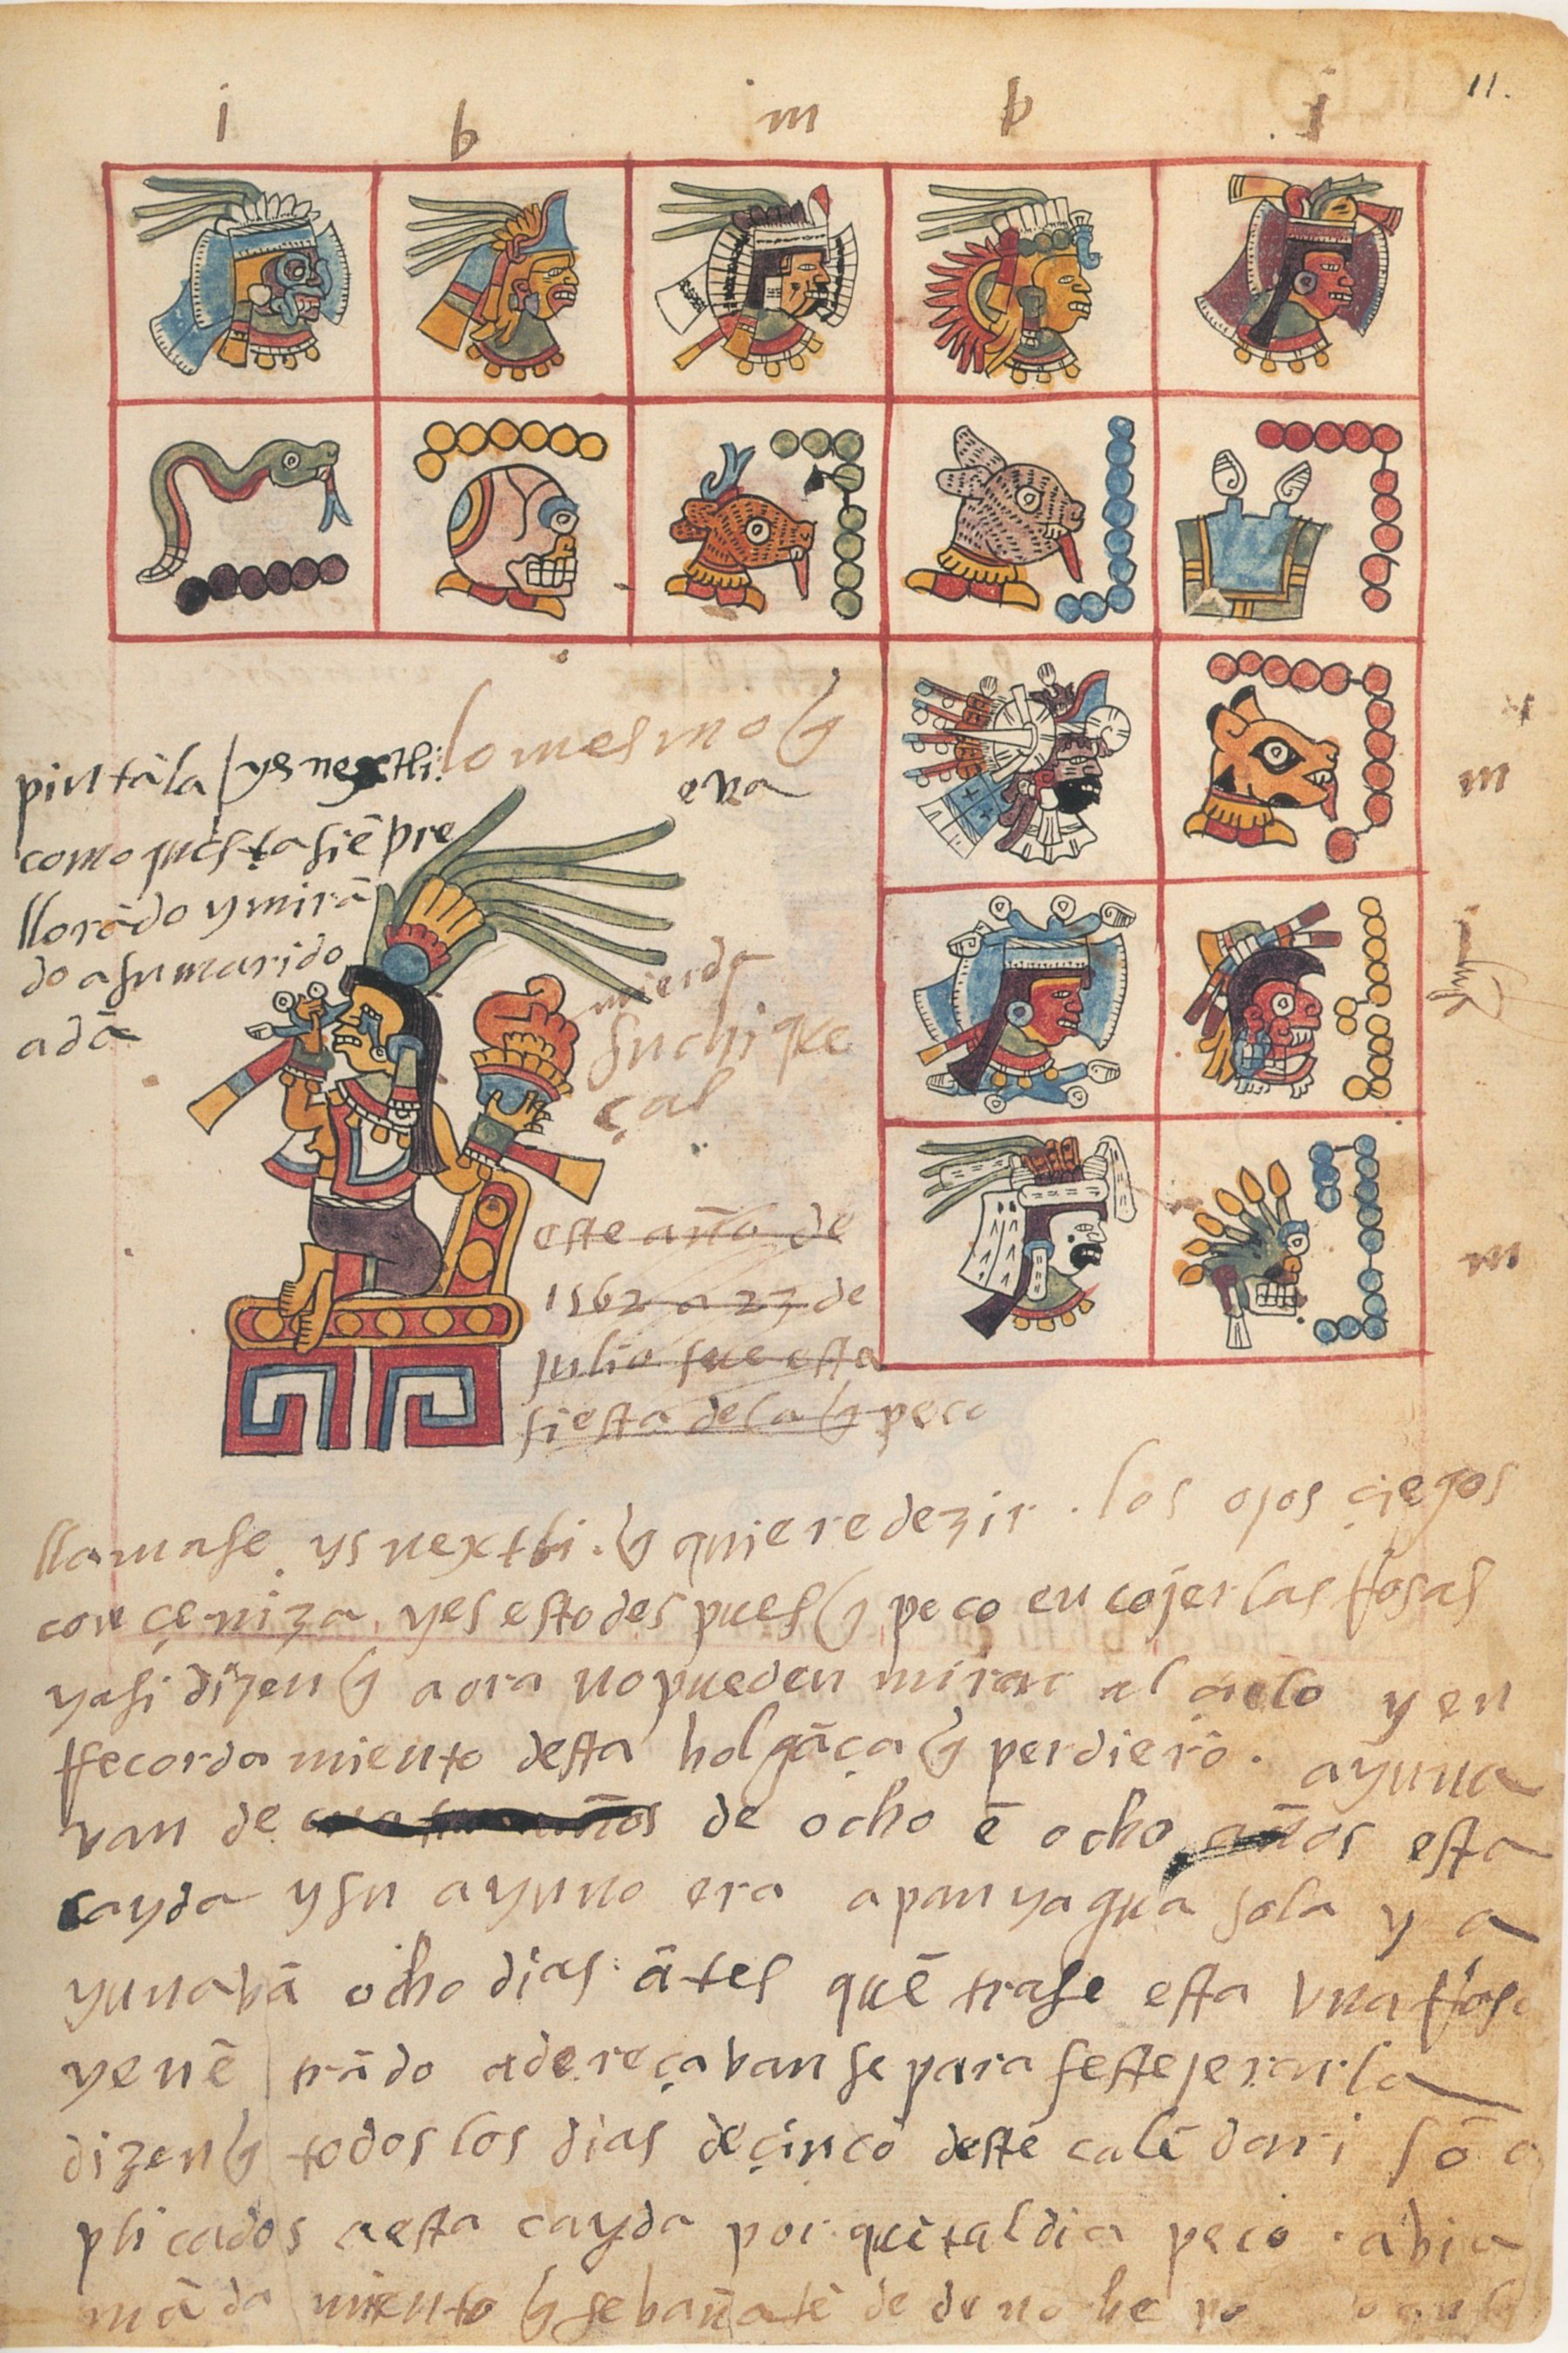 11.
i b m b i
lo mesmo q̃
eva
pintãla / ysnextli:
como questa siẽpre
llorãdo y mirã
do a su marido
adã
mierda
suchi que
çal
m
m
este año de
1562 a 23 de
julio fue esta
fiesta de la q̃ peco
llamase ysnextli. q̃ quiere dezir. los ojos çiegos
con çeniza, y es esto despues q̃ peco en cojer las rrosas
y asi dizen q̃ aora no pueden mirar al çielo y en
rrecordamiento desta holgãça q̃ perdierõ. ayuna
van de años de ocho ẽ ocho años esta
cayda y su ayuno era a pan y agua sola y a
yunabã ocho dias ãtes quẽ trase esta vna rrosa
y enẽ trãdo adereçavan se para festejerarla
dizen q̃ todos los dias de çinco deste calẽdari sõ a
plicados a esta cayda por que tal dia peco. abia
mãdamiento q̃ se bañatẽ de